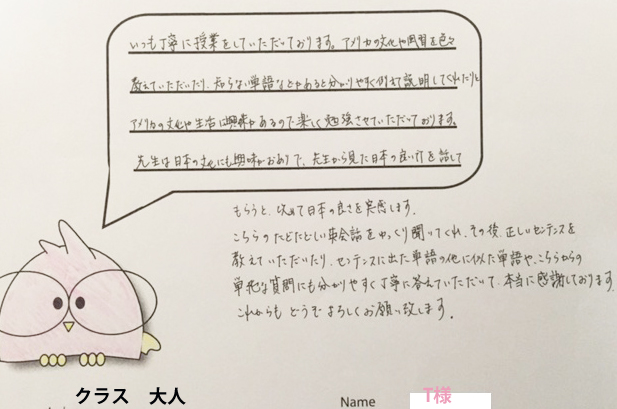 いつも丁寧に授業をしていただいております。アメリカの文化や風習を色々
教えていただいたり、知らない単語などがあると分かりやすく例えて説明してくれたりと
アメリカの文化や生活に興味があるので楽しく勉強させていただいております。
先生は日本の文化にも興味がおありで、先生から見た日本の良い所を話して
もらうと、改めて日本の良さを実感します。
こちらのたどたどしい英会話をゆっくり聞いてくれ、その後、正しいセンテンスを
教えていただいたり、センテンスに出た単語の他に似た単語や、こちらからの
単純な質問にも分かりやすく丁寧に答えていただいて、本当に感謝しております。
これからも どうぞよろしくお願い致します。
クラス 大人
Name T様